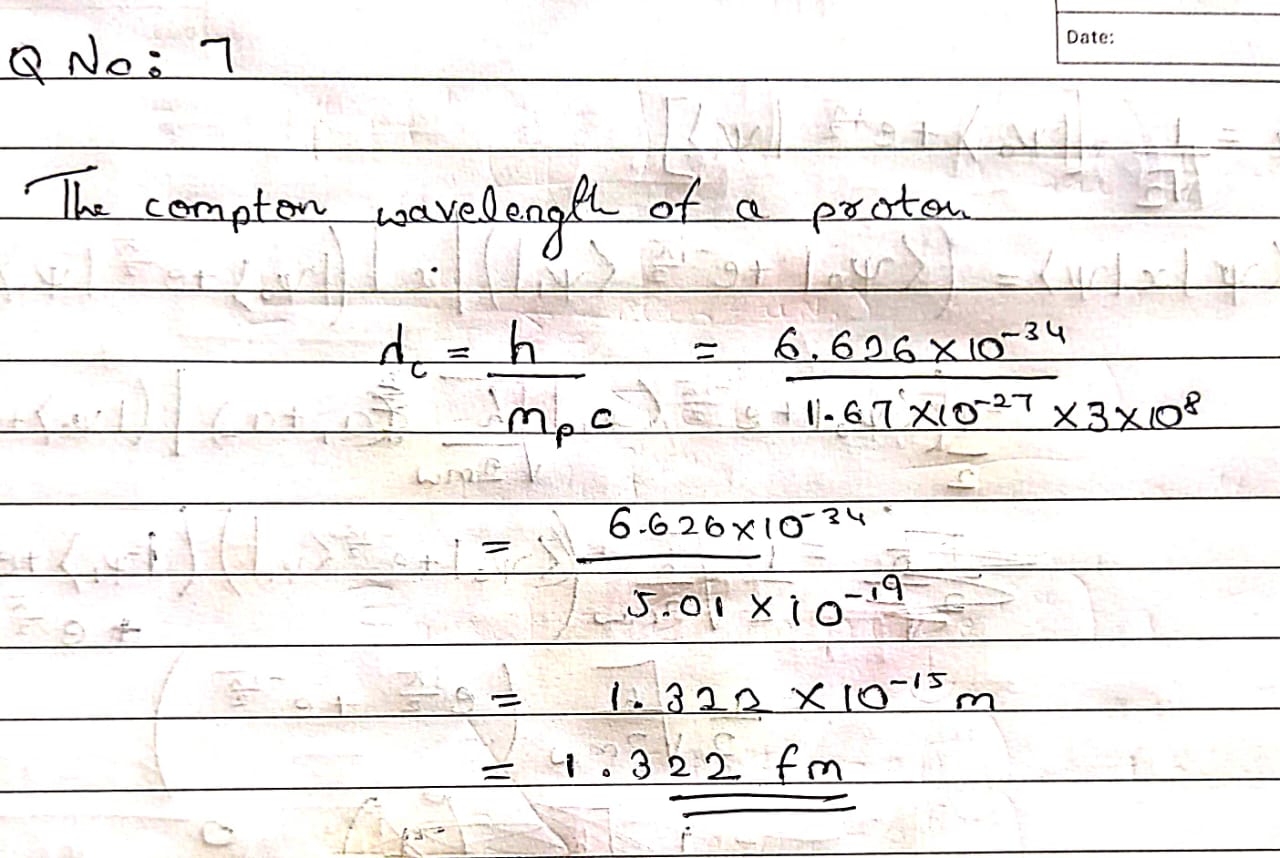 Date:
Q No: 7
The compton wavelength of a proton
λc = h / mp c = 6.626 × 10^-34 / 1.67 × 10^-27 × 3 × 10^8
= 6.626 × 10^-34 / 5.01 × 10^-19
= 1.322 × 10^-15 m
= 1.322 fm